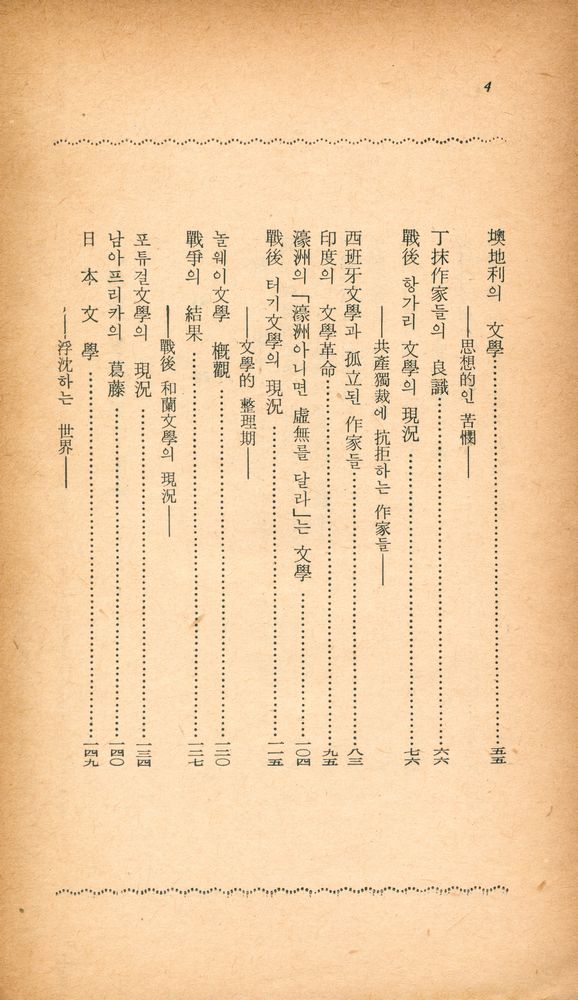 4
墺地利의 文學……五五
——思想的인 苦憫——
丁抹作家들의 良識……六六
戰後 항가리 文學의 現況……七六
——共産獨裁에 抗拒하는 作家들——
西班牙文學과 孤立된 作家들……八三
印度의 文學革命……九五
濠洲의「濠洲아니면 虛無를 달라」는 文學……一〇四
戰後 터기文學의 現況……一一五
——文學的 整理期——
놀웨이文學 槪觀……一二〇
戰爭의 結果……一二七
——戰後 和蘭文學의 現況——
포튜걸文學의 現況……一三四
남아프리카의 葛藤……一四〇
日本文學……一四九
——浮沈하는 世界——